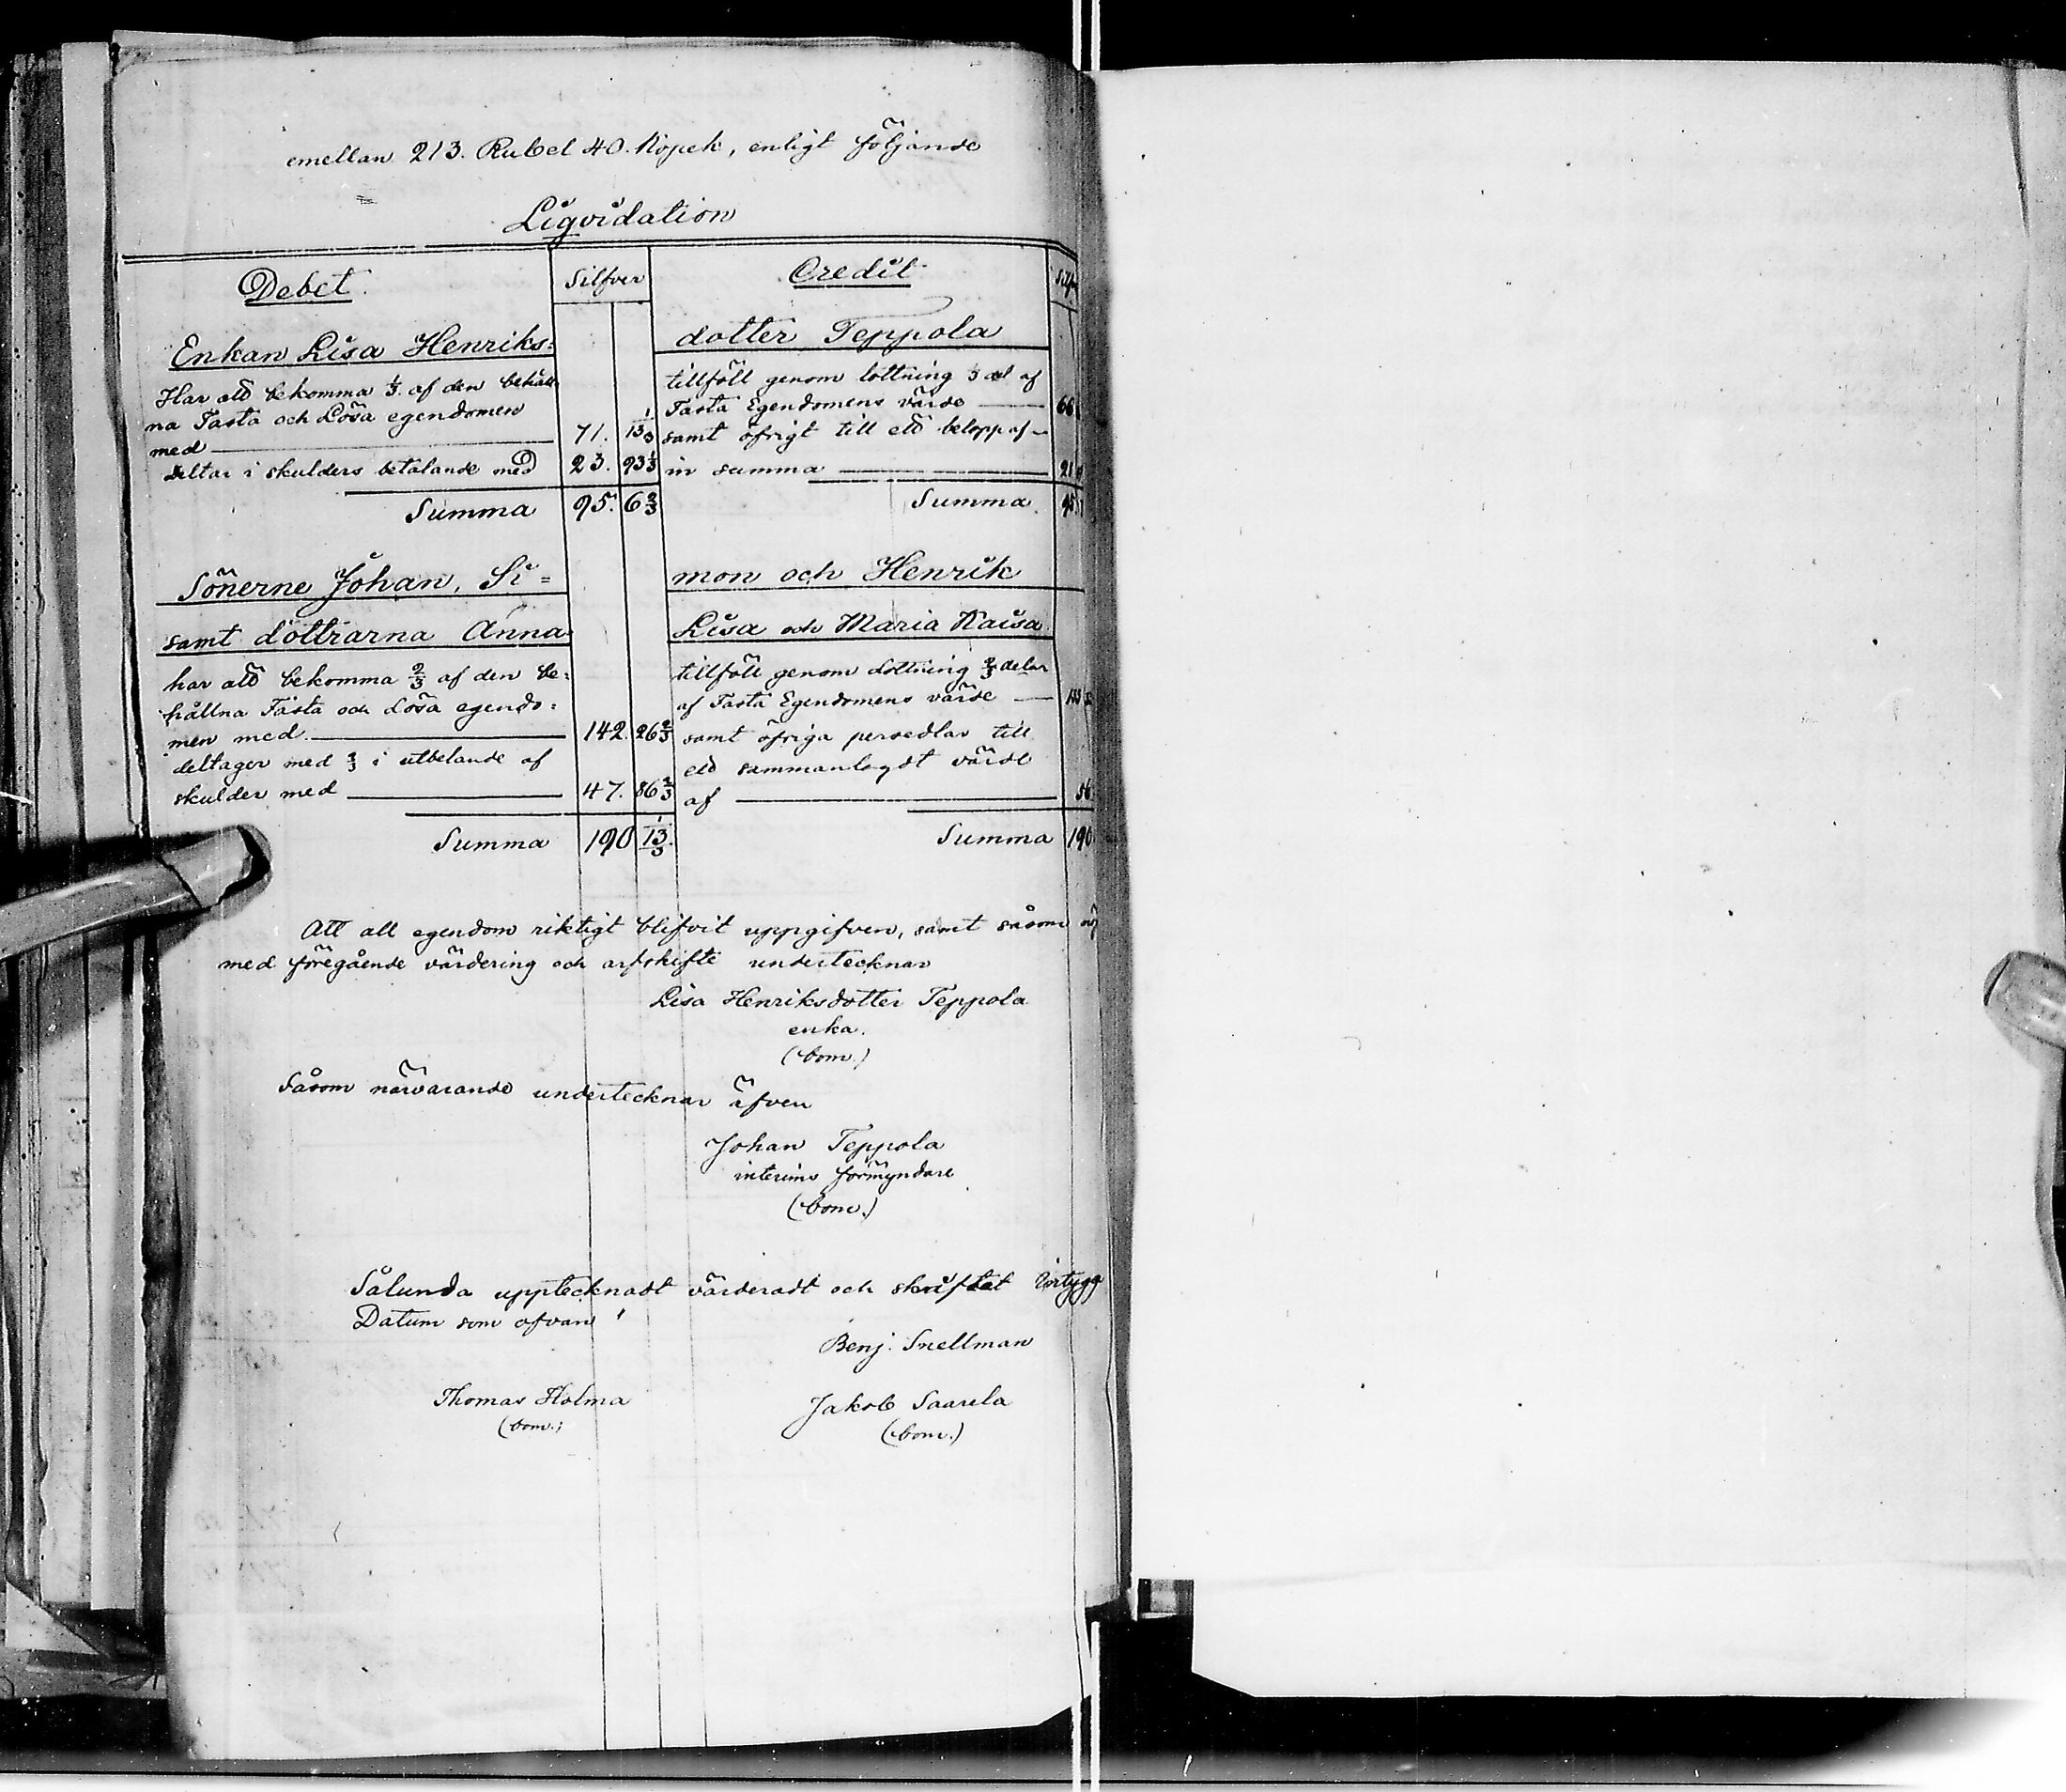 emellan 213. Rubel 40. Kopek, enligt följande
Liqvidation
Debet. Silfver Credit
Enkan Lisa Henriks= dotter Teppola
Har att bekomma 1/3 af den behåll-
na Fasta och Lösa egendomen
med 71. 13 1/3
deltar i skulders betalande med 23. 93 1/3
Summa 95. 6 2/3
tillföll genom lottning 1/3 del af
Fasta Egendomens värde 66
samt öfrigt till ett belopp af
in summa
Summa. 95.
Sönerne Johan, Si= mon och Henrik
samt döttrarna Anna Lisa och Maria Kaisa
har att bekomma 2/3 af den be=
hållna Fasta och Lösa egendo=
men med. 142. 26 2/3
deltager med 2/3 i utbelande af
skulder med 47. 86 2/3
Summa 190 13 1/3
tillföll genom Lottning 2/3 delar
af Fasta Egendomens värde
samt öfriga persedlar till
ett sammanlagdt värde
af
Summa 190
Att all egendom riktigt blifvit uppgifven, samt såsom nöj
med föregående värdering och arfskifte undertecknar
Lisa Henriksdotter Teppola
enka.
(bom.)
Såsom närvarande undertecknar äfven
Johan Teppola
interims förmyndare
(bom.)
Sålunda upptecknadt värderadt och skriftat
Datum som ofvan
Benj. Snellman
Thomas Holma Jakob Saarela
(bom.) (bom.)